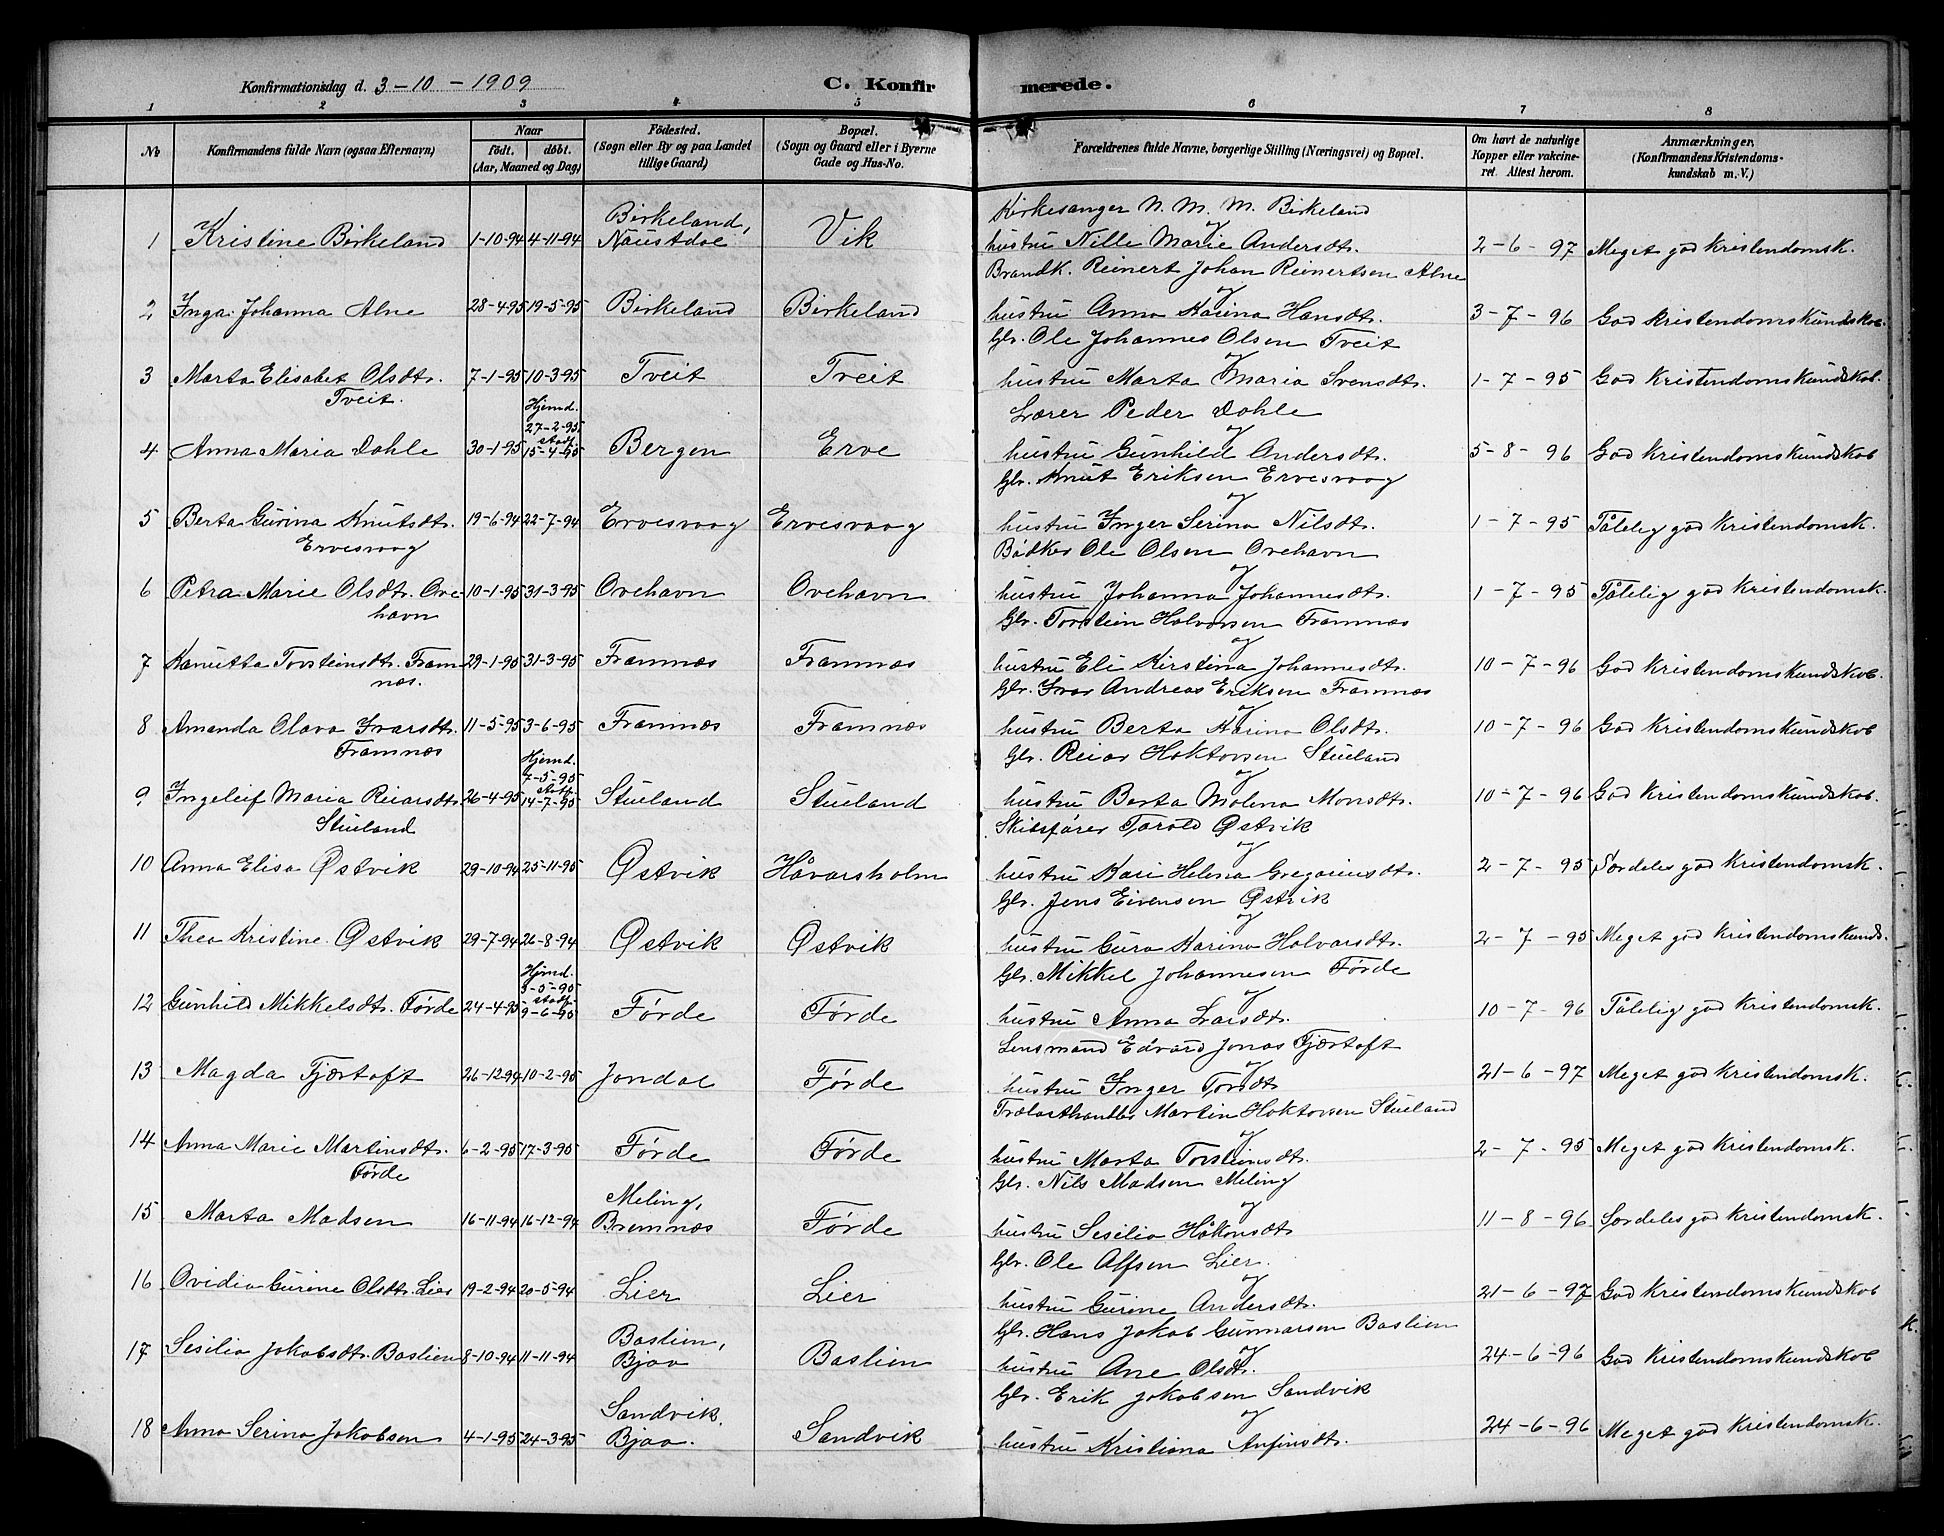 Konfirmationsdag d. 3-10-1909
C. Konfirmerede.
1 2 3 4 5 6 7 8
No
Konfirmandens fulde Navn (ogsaa Efternavn)
Naar
født. døbt.
(Aar, Maaned og Dag)
Fødested.
(Sogn eller By og paa Landet
tillige Gaard)
Bopæl.
(Sogn og Gaard eller i Byerne
Gade og Hus-No.
Forældrenes fulde Navne, borgerlige Stilling (Næringsvei) og Bopæl.
Om havt de naturlige
Kopper eller vakcine-
ret. Attest herom.
Anmærkninger,
(Konfirmandens Kristendoms-
kundskab m. V.)
Kirkesanger N. M. M. Birkeland
og
1 Kristine Birkeland 1-10-94 4-11-94 Birkeland, Naustdal Vik hustru Nille Marie Andersdtr. 2-6-97 Meget god Kristendomsk.
Brandk. Reinert Johan Reinertsen Alne
og
2 Inga Johanna Alne 28-4-95 19-5-95 Birkeland Birkeland hustru Anna Karina Hansdtr. 3-7-96 God Kristendomskundskab.
Gbr. Ole Johannes Olsen Tveit
og
3 Marta Elisabet Olsdtr. Tveit. 7-1-95 10-3-95 Tveit Tveit hustru Marta Maria Svensdtr. 1-7-95 God Kristendomskundskab.
Lærer Peder Dahle
og
4 Anna Maria Dahle 30-1-95 Hjemd. 27-2-95 stadf. 15-4-95 Bergen Erve hustru Gunhild Andersdtr. 5-8-96 God Kristendomskundskab
Gbr. Knut Eriksen Ervesvaag
og
5 Berta Gurina Knutsdtr. Ervesvaag 19-6-94 22-7-94 Ervesvaag Ervesvaag hustru Inger Serina Nilsdtr. 1-7-95 Tålelig god Kristendomsk.
Bødker Ole Olsen Ovehavn
og
6 Petra Marie Olsdtr. Ove-havn 10-1-95 31-3-95 Ovehavn Ovehavn hustru Johanna Johannesdtr. 1-7-95 Tålelig god Kristendomsk.
Gbr. Torstein Halvorsen Framnæs
og
7 Kanutta Torsteinsdtr. Fram-næs. 29-1-95 31-3-95 Framnæs Framnæs hustru Eli Kirstina Johannesdtr. 10-7-96 God Kristendomskundskab.
Gbr. Ivar Andreas Eriksen Framnæs
og
8 Amanda Olava Ivarsdtr. Framnæs 11-5-95 3-6-95 Framnæs Framnæs hustru Berta Karina Olsdtr. 10-7-96 God Kristendomskundskab
Gbr. Reiar Haktorsen Stueland
og
9 Ingeleif Maria Reiarsdtr. Stueland 26-4-95 Hjemd. 7-5-95 stadf. 14-7-95 Stueland Stueland hustru Berta Malena Monsdtr. 10-7-96 God Kristendomskundskab.
Skibsfører Tarald Østvik
og
10 Anna Elisa Østvik 29-10-94 25-11-95 Østvik Håvarsholm hustru Kari Helena Gregoriusdtr. 2-7-95 Særdeles god Kristendomsk.
Gbr. Jens Eivensen Østvik
og
11 Thea Kristine Østvik 29-7-94 26-8-94 Østvik Østvik hustru Guro Karina Halvarsdtr. 2-7-95 Meget god Kristendomskunds.
Gbr. Mikkel Johannesen Førde
og
12 Gunhild Mikkelsdtr. Førde 24-4-95 Hjemd. 3-5-95 stadf. 9-6-95 Førde Førde hustru Anna Larsdtr. 10-7-96 Tålelig god Kristendomsk.
Lensmand Edvard Jonas Fjærtoft
og
13 Magda Fjærtoft 26-12-94 10-2-95 Jondal Førde hustru Inger Torsdt 21-6-97 Meget god Kristendomsk.
Trælasthandler Martin Haktorsen Stueland
og
14 Anna Marie Martinsdtr. Førde 6-2-95 17-3-95 Førde Førde hustru Marta Torsteinsdtr. 2-7-95 Meget god Kristendomsk.
Gbr. Nils Madsen Meling
og
15 Marta Madsen 16-11-94 16-12-94 Meling, Bremnæs Førde hustru Sesilia Håkonsdtr 11-8-96 Særdeles god Kristendomsk.
Gbr. Ole Alfsen Lier.
og
16 Ovidia Gurine Olsdtr. Lier 19-2-94 20-5-94 Lier Lier hustru Gurine Andersdtr. 21-6-97 God Kristendomskundskab
Gbr. Hans Jakob Gunnarsen Bastlien
og
17 Sesilia Jakobsdtr. Bastlien 8-10-94 11-11-94 Bastlien, Bjoa Bastlien hustru Ane Olsdtr. 24-6-96 God Kristendomskundskab
Gbr. Erik Jakobsen Sandvik
og
18 Anna Serina Jakobsen 4-1-95 24-3-95 Sandvik. Bjoa. Sandvik hustru Kristiana Anfinsdtr. 24-6-96 Meget god Kristendomsk.